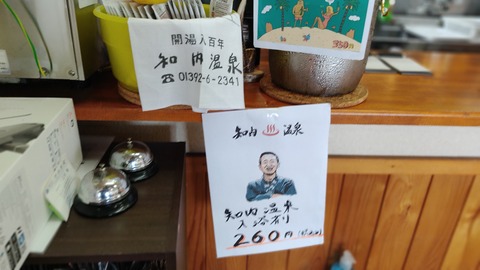 開湯八百年
知内温泉
☎01392-6-2341
350円
知内♨温泉
知内温泉
入浴剤
260円